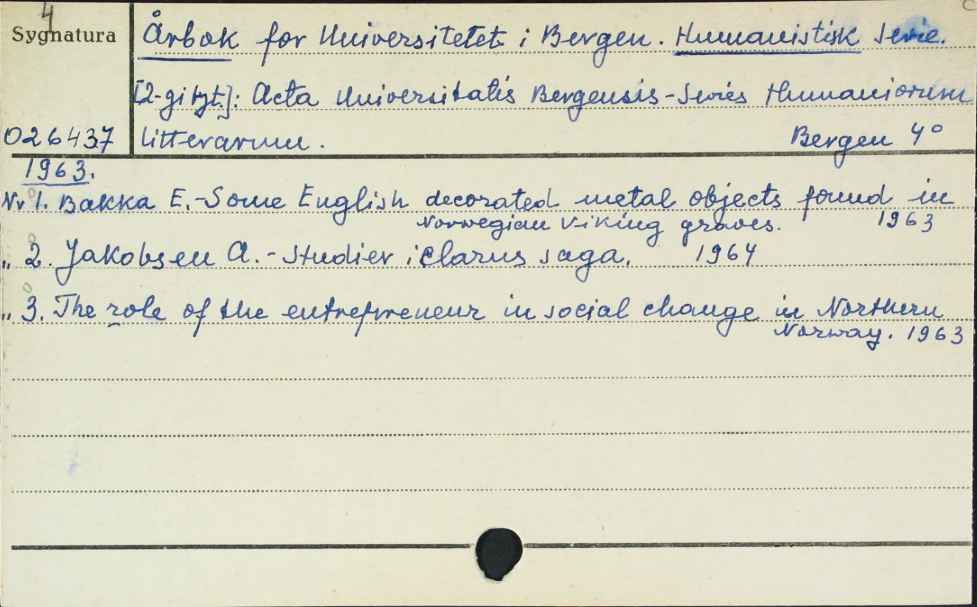 4
Sygnatura
Årbok for Universitetet i Bergen. Humanistisk Serie.
[2-gi tyt.]: Acta Universitatis Bergensis-Series Humaniorum
026437 litterarum. Bergen 4°
1963.
Nr 1. Bakka E.-Some English decorated metal objects found in
Norwegian Viking graves. 1963
„ 2. Jakobsen A.-Studier i Clarus saga. 1964
„ 3. The role of the entrepreneur in social change in Northern
Norway. 1963